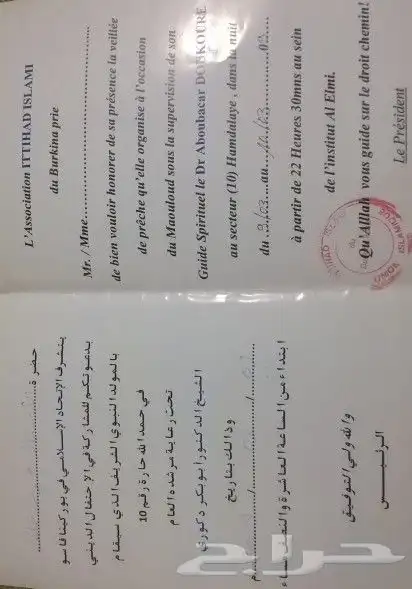 L'Association ITTIHAD ISLAMI
du Burkina prie
Mr. / Mme........................................
de bien vouloir honorer de sa présence la veillée
de prêche qu'elle organise à l'occasion
du Maouloud sous la supervision de son
Guide Spirituel le Dr Aboubacar DOUKOURE
au secteur (10) Hamdalaye, dans la nuit
du 9/03 au 03
à partir de 22 Heures 30mns au sein
de l'institut Al Elmi.
Qu'Alllah vous guide sur le droit chemin!
Le Président
حضرة........................................
يتشرف الإتحاد الإسلامي في بوركينا فاسو
بدعوتكم للمشاركة في الإحتفال الديني
بالمولد النبوي الشريف الذي سيقام
في حمد الله حارة رقم 10
تحت رعاية مرشده العام
الشيخ الدكتور أبوبكر دكوري
وذالك بتاريخ
م........../........../..........
ابتداء من الساعة العاشرة والنصف مساء
والله ولي التوفيق
الرئيس
حراج